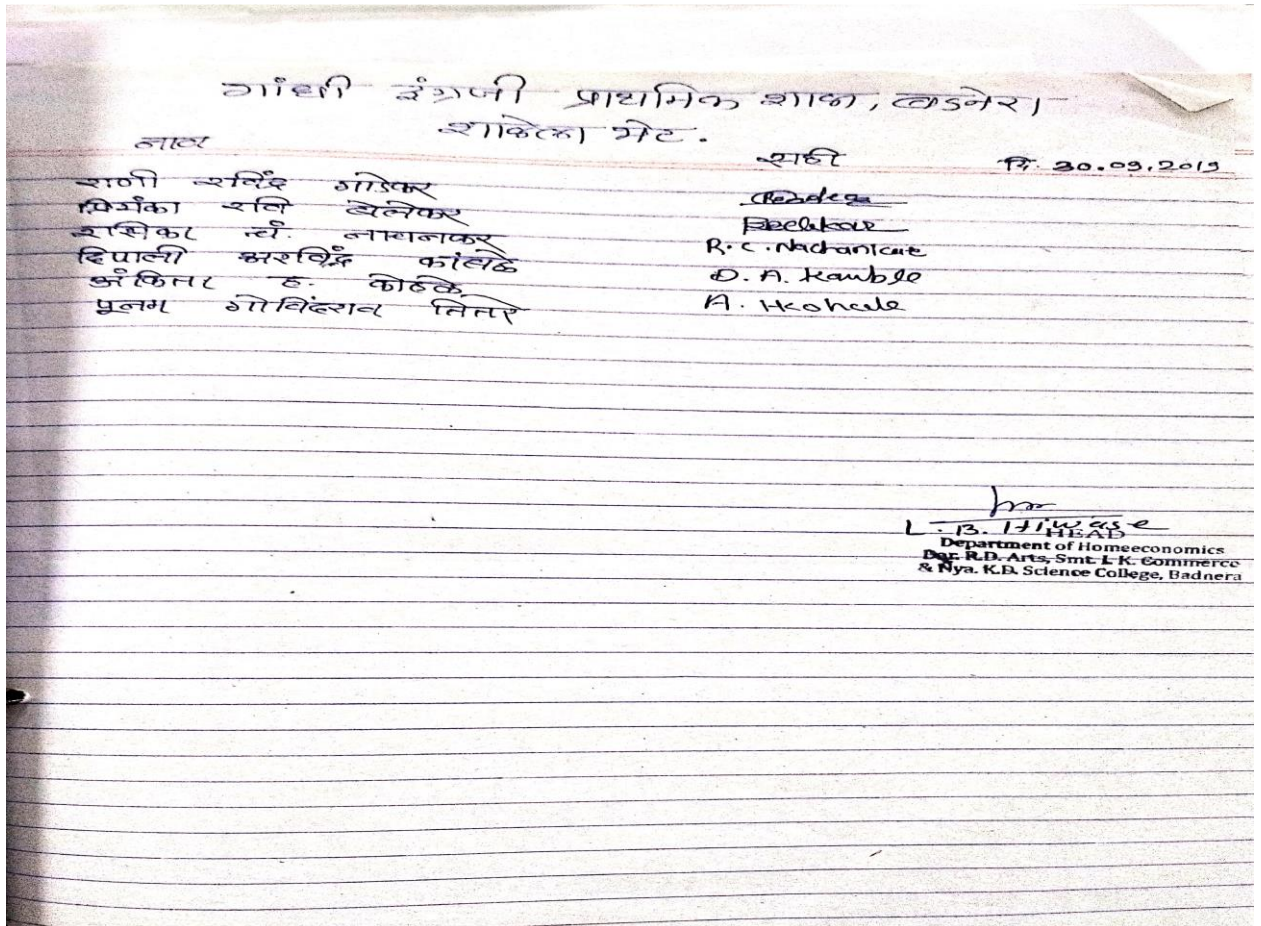 गांधी इंग्रजी प्राथमिक शाळा, बडनेरा
शाळेला भेट.
नाव सही दि. 30.09.2019
राणी रविंद्र गोंडेकर
प्रियंका रवि बेलेकर
रसिका चं. नाचनकर R.C. Nachankar
दिपाली अरविंद कांबळे D.A. Kamble
अंकिता ह. कोहळे A. Hkohale
पूनम गोविंदराव तितरे
L.B. Hiwase
HEAD
Department of Homeeconomics
Dar. R.D. Arts, Smt. L.K. Commerce
& Nya. K.D. Science College, Badnera